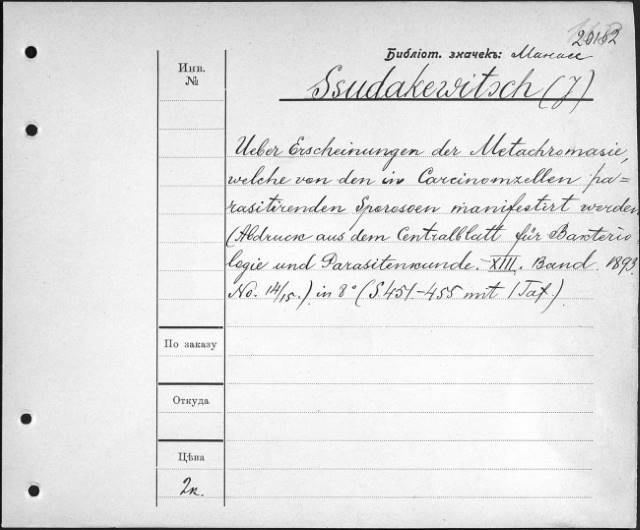 20152
Библіот. значекъ: Манасс
Инв.
№
Ssudakewitsch (J)
Ueber Erscheinungen der Metachromasie,
welche von den in Carcinomzellen pa=
rasitirenden Sporosoen manifestirt werden
(Abdruck aus dem Centralblatt für Bakterio
logie und Parasitenkunde. XIII. Band. 1893.
No. 14/15.) in 8° (S. 451-455 mit 1 Taf.)
По заказу
Откуда
Цѣна
2к.